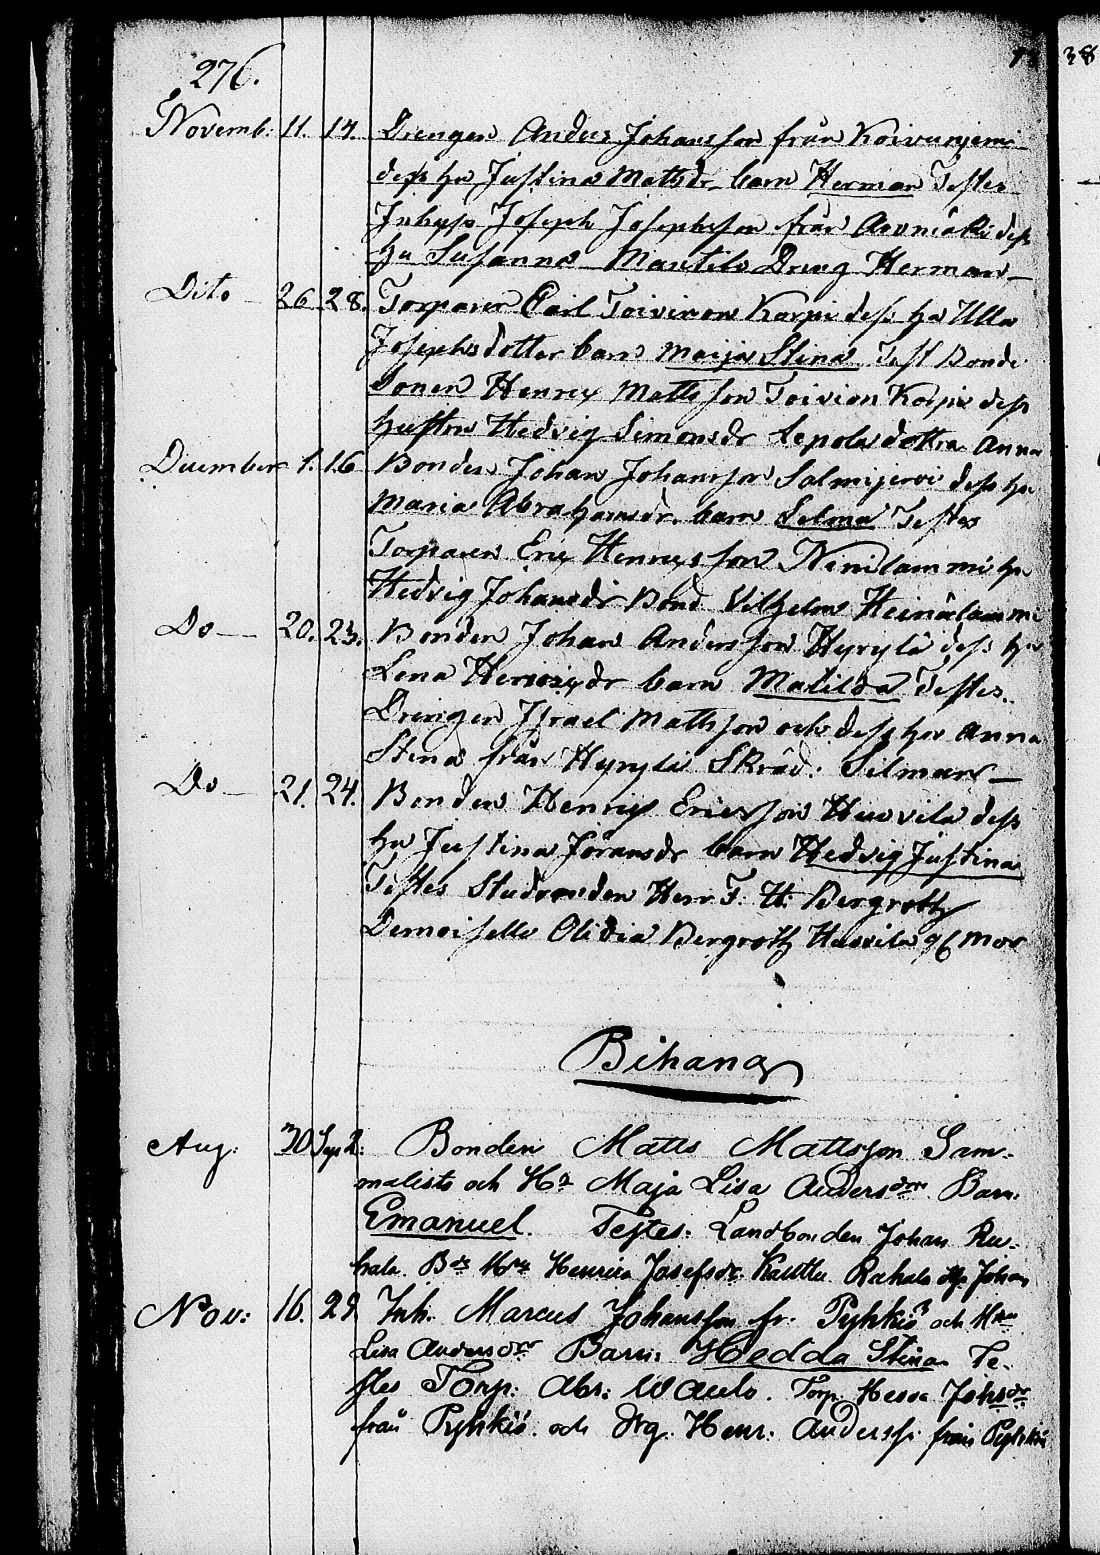 276.
38
Novemb. 11. 17. Drengen Anders Johansson från Koivunjemi
dess hu Justina Mattsdr barn Herman Testes
Inhyss Joseph Josephsson från dess
hu Susanna Mantila Dreng Herman
Dito 26. 28. Torparen Carl Toivion Korpi dess hu Ulla
Josephsdotter barn Maija Stina Test Bonde
Sonen Henric Matts son Toivion Korpi dess
hustru Hedvig Simonsdr Lepola dottra Anna
December 1. 16 Bonden Johan Johansson Salmijervi dess hu
Maria Abrahamsdr barn Selma Testes
Torparen Eric Henricsson hu
Hedvig Johansdr Bond Vilhelm Heinälammi
Do 20. 23. Bonden Johan Andersson Hyrylä dess hu
Lena Henricsdr barn Matilda Testes
Drengen Israel Mattsson och dess hu Anna
Stina från Hyrylä Skräd. Selman
Do 21. 24. Bonden Henric Ericsson Huovila dess
hu Justina Jöransdr barn Hedvig Justina
Testes Studeranden Herr F. H. Bergroth
Demoiselle Olidia Bergroth Huovila af Mor
Bihang
Aug: 30 Sep 2: Bonden Matts Mattsson Sam-
malisto och Hu Maja Lisa Andersdr Barn:
Emanuel. Testes: Landbonden Johan Ra-
hala Bds Hru Henrica Josefsdr Kauttu Rahala Johan
Nov: 16. 29. Inh. Marcus Johansson fr. Pyhkiö och Hu
Lisa Andersdr Barn: Hedda Stina. Te-
stes Torp: Abr: Waulo. Torp. Hessa Johsdr
från Pyhkiö och Drg. Henr. Anderss: från Pyhkiö